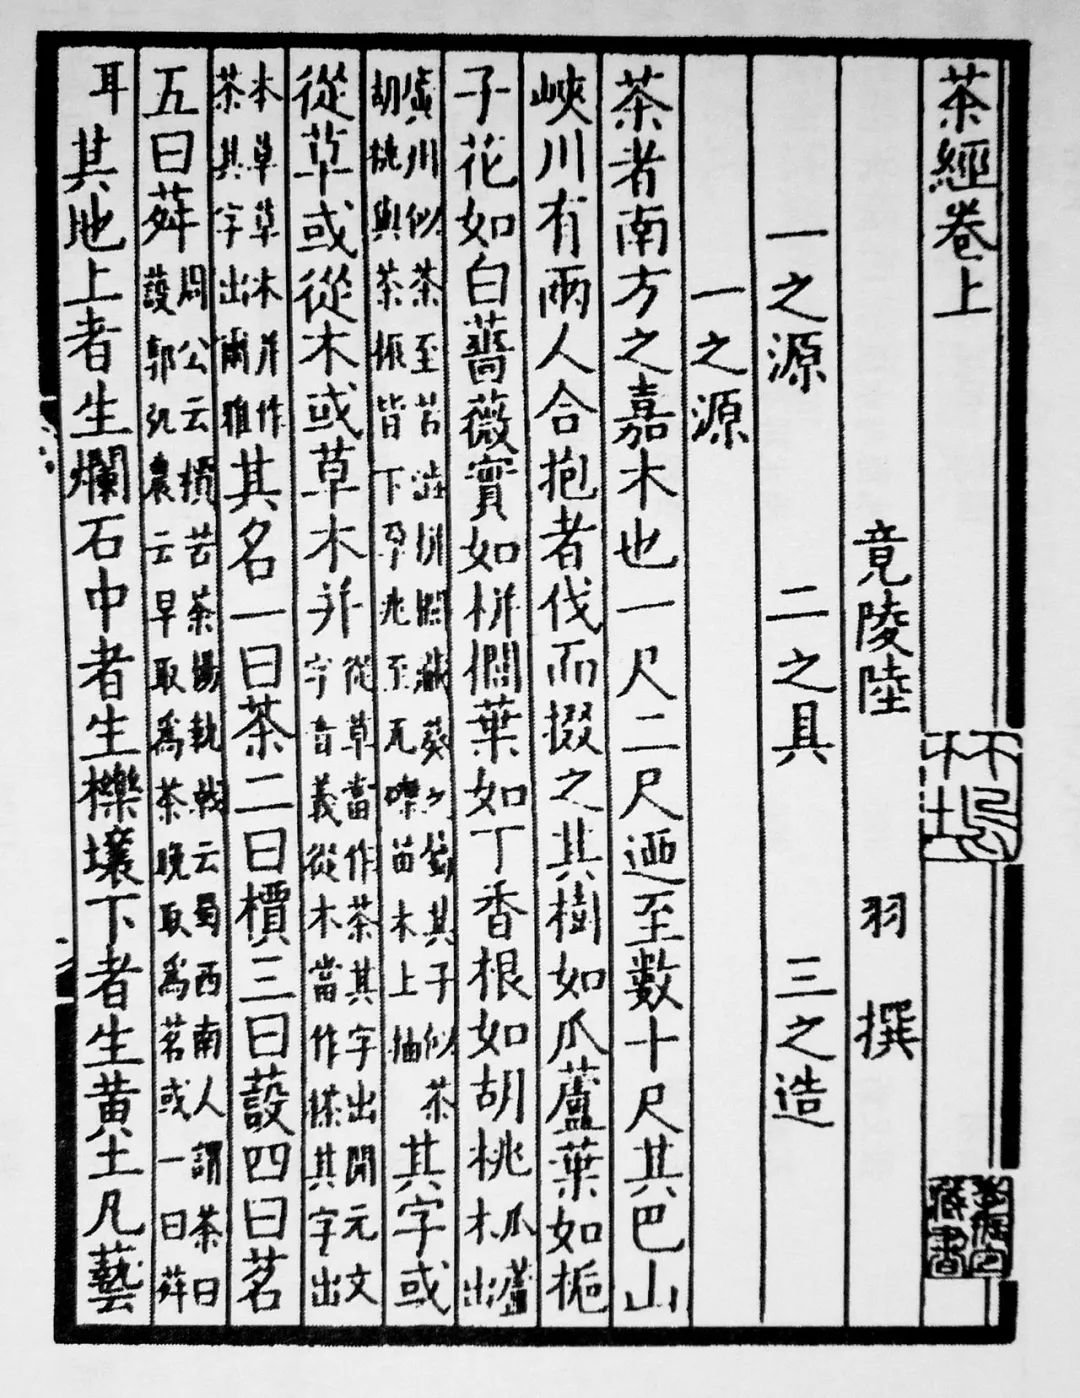 茶經卷上
竟陵陸 羽 撰
一之源 二之具 三之造
一之源
茶者南方之嘉木也一尺二尺迺至數十尺其巴山
峽川有兩人合抱者伐而掇之其樹如瓜蘆葉如梔
子花如白薔薇實如栟櫚葉如丁香根如胡桃瓜蘆木出
廣川似茶至苦澁栟櫚葵之其子似茶胡桃與茶根皆下孕兆至瓦礫苗木上抽其字或
從草或從木或草木并從草當作茶其字出開元文字音義從木當作搽其字出
本草草木并作茶其字出爾雅其名一曰茶二曰檟三曰蔎四曰茗
五曰荈周公云檟苦茶楊執戟云蜀西南人謂茶曰蔎郭弘農云早取爲茶晚取爲茗或一曰荈
耳其地上者生爛石中者生櫟壤下者生黄土凡藝